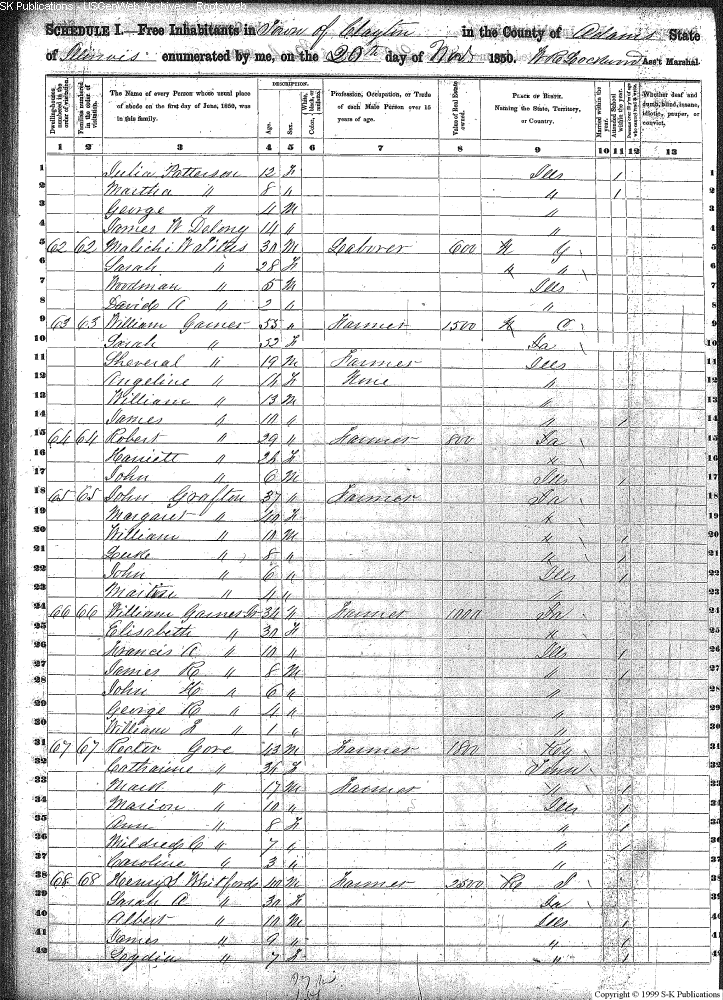 SK Publications - USGenWeb Archives - Rootsweb
SCHEDULE I.—Free Inhabitants in Town of Clayton in the County of Adams State
of Illinois enumerated by me, on the 20th day of Nov 1850. Ass't Marshal.
Dwelling-houses numbered in the order of visitation.
Families numbered in the order of visitation.
The Name of every Person whose usual place of abode on the first day of June, 1850, was in this family.
DESCRIPTION.
Age.
Sex.
White, black, or mulatto. Color,
Profession, Occupation, or Trade of each Male Person over 15 years of age.
Value of Real Estate owned.
PLACE OF BIRTH. Naming the State, Territory, or Country.
Married within the year.
Attended School within the year.
Persons over 20 y'rs of age who cannot read & write.
Whether deaf and dumb, blind, insane, idiotic, pauper, or convict.
1 2 3 4 5 6 7 8 9 10 11 12 13
1 Julia Patterson 12 F Ills 1 1
2 Martha " 8 " " 1 2
3 George " 4 M " 3
4 James W Delong 14 " " 4
5 62 62 Malichi 30 M Laborer 600 N Y 5
6 Sarah " 28 F " " 6
7 Woodman " 5 M Ills 7
8 David A " 2 " " 8
9 63 63 William Gaines 55 " Farmer 1500 N C 9
10 Sarah " 52 F 10
11 Sheveral " 19 M Farmer Ills 11
12 Angeline " 16 F None " 12
13 William " 13 M " 13
14 James " 10 " " 1 14
15 64 64 Robert " 29 " Farmer 800 15
16 Harriett " 26 F " 16
17 John " 6 M Ills 1 17
18 65 65 John Grafton 37 " Farmer 18
19 Margaret " 40 F " 19
20 William " 10 M " 1 20
21 Luke " 8 " " 1 21
22 John " 6 " Ills 1 22
23 " 4 " " 23
24 66 66 William Gaines Jr 34 " Farmer 1000 24
25 Elisabeth " 30 F " 25
26 Francis A " 10 " Ills 1 26
27 James R " 8 M " 1 27
28 John H " 6 " " 28
29 George R " 4 " " 29
30 William L " 1 " " 30
31 67 67 Rector Gore 43 M Farmer 1800 Ky 31
32 Catharine " 36 F Tenn 32
33 Mark " 17 M Farmer " 1 33
34 Marion " 10 " Ills 1 34
35 Ann " 8 F " 1 35
36 Mildred C " 7 " " 1 36
37 Caroline " 3 " " 37
38 68 68 Henry S Whitford 40 M Farmer 2500 R I 38
39 Sarah A " 30 F 39
40 Albert " 10 M Ills 1 40
41 James " 9 " " 1 41
42 Loydia " 7 F " 1 42
Copyright © 1999 S-K Publications